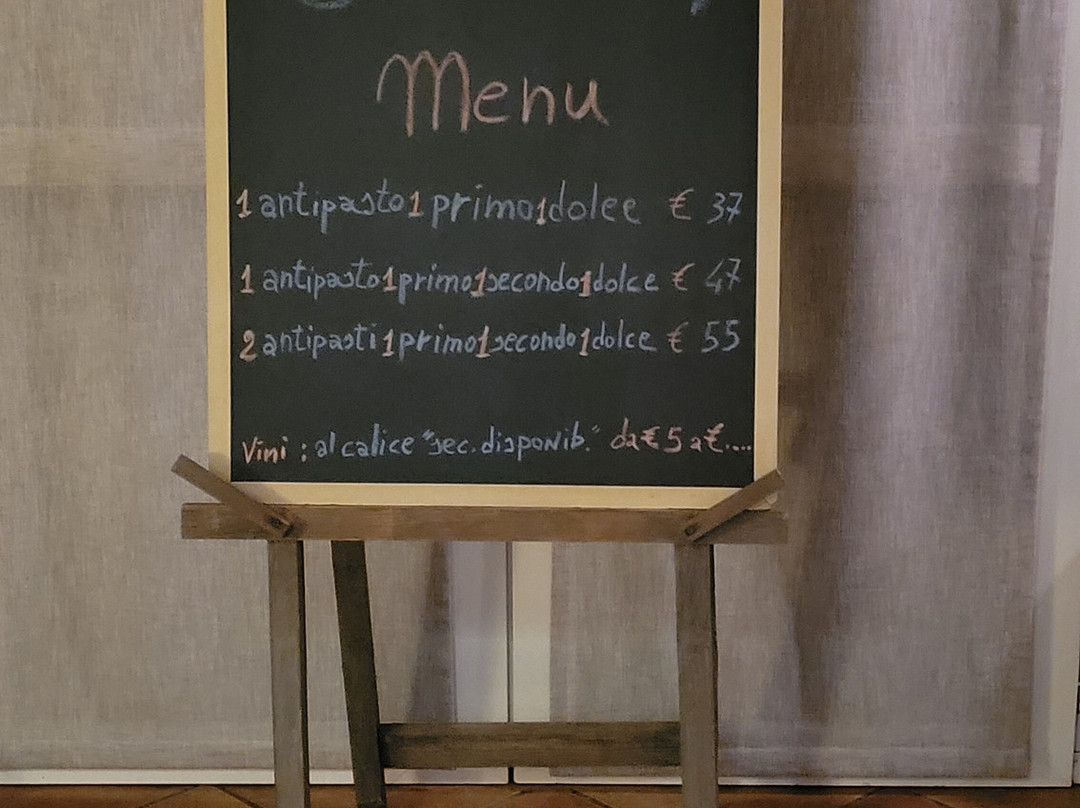 Menu
1 antipasto 1 primo 1 dolce € 37
1 antipasto 1 primo 1 secondo 1 dolce € 47
2 antipasti 1 primo 1 secondo 1 dolce € 55
Vini : al calice "sec. disponib." da € 5 a €....